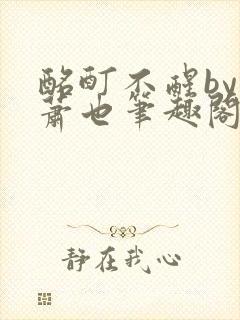 酩酊不醒by
萧也笔趣阁
静在我心